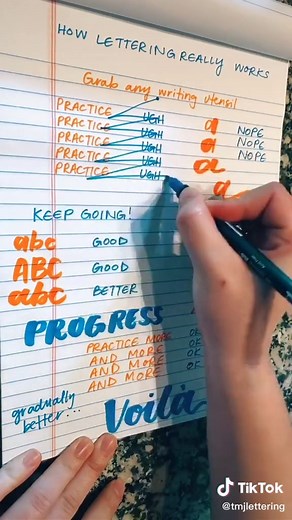 HOW LETTERING REALLY WORKS
Grab any writing utensil
PRACTICE UGH a NOPE
PRACTICE UGH a NOPE
PRACTICE UGH a NOPE
PRACTICE UGH a
PRACTICE UGH
KEEP GOING!
abc GOOD
ABC GOOD
abc BETTER
PROGRESS
PRACTICE MORE
AND MORE OK
AND MORE OK
AND MORE
gradually better...
Voilà
TikTok
@tmjlettering